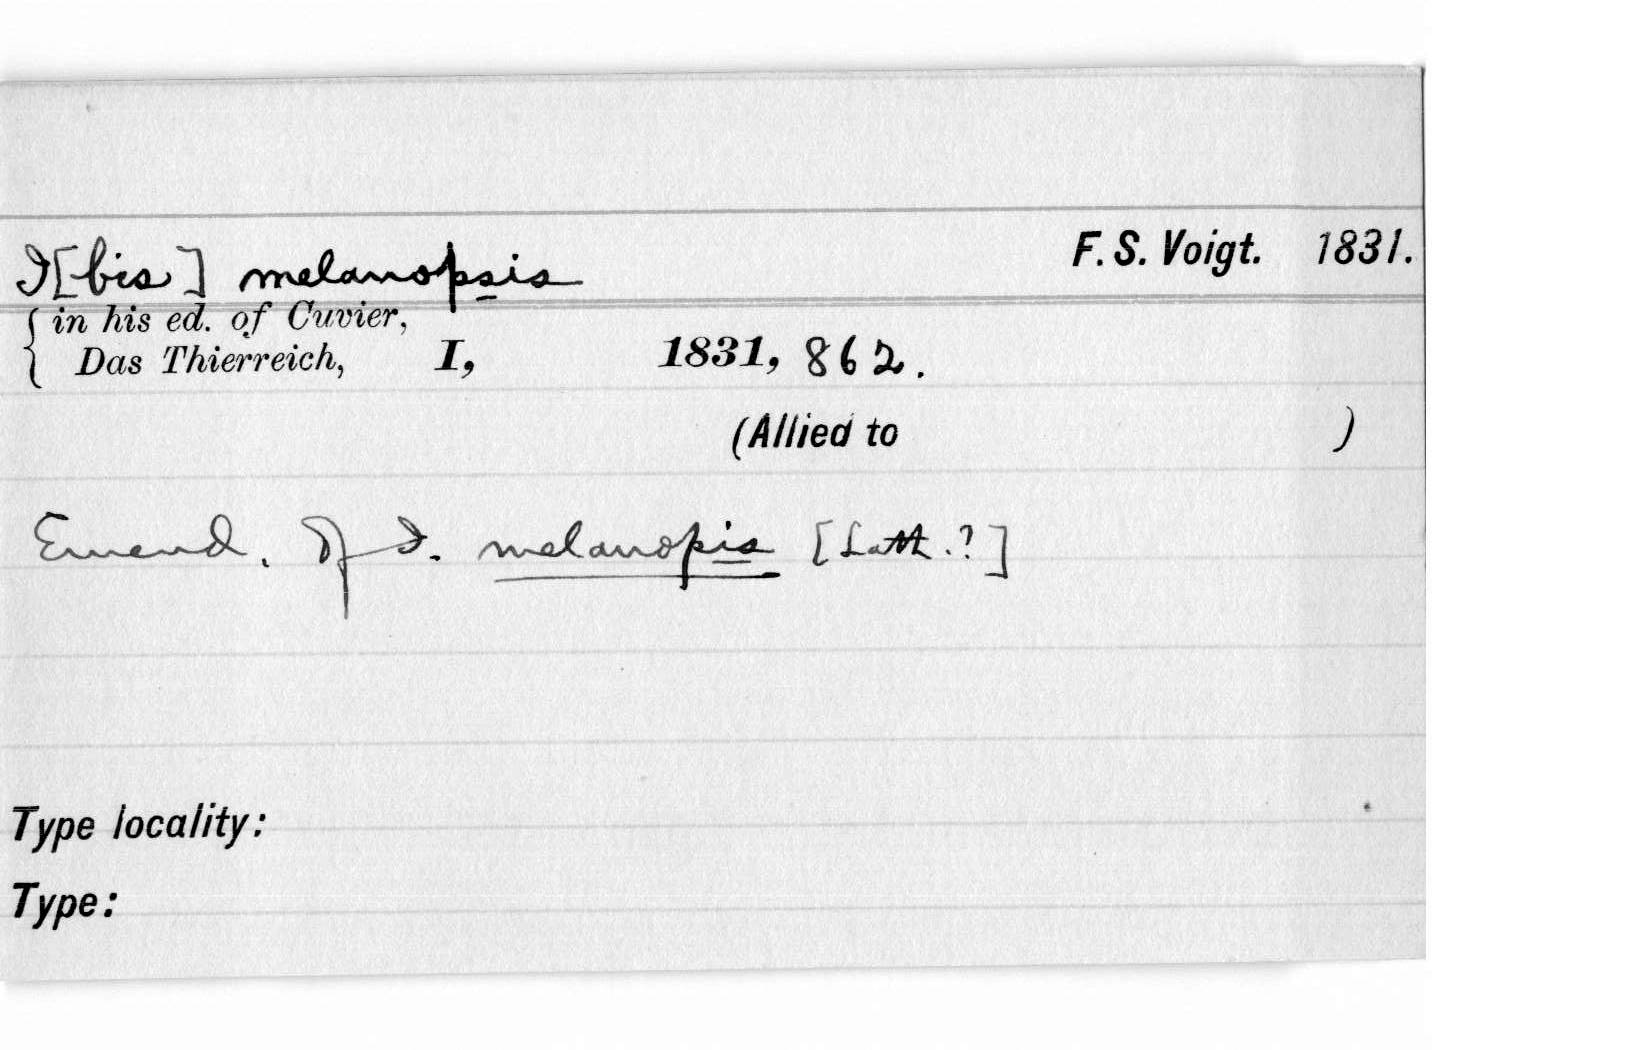 I[bis] melanopsis F. S. Voigt. 1831.
{ in his ed. of Cuvier,
Das Thierreich, I, 1831, 862.
(Allied to )
Emend. of I. melanopis [Lath.?]
Type locality:
Type: